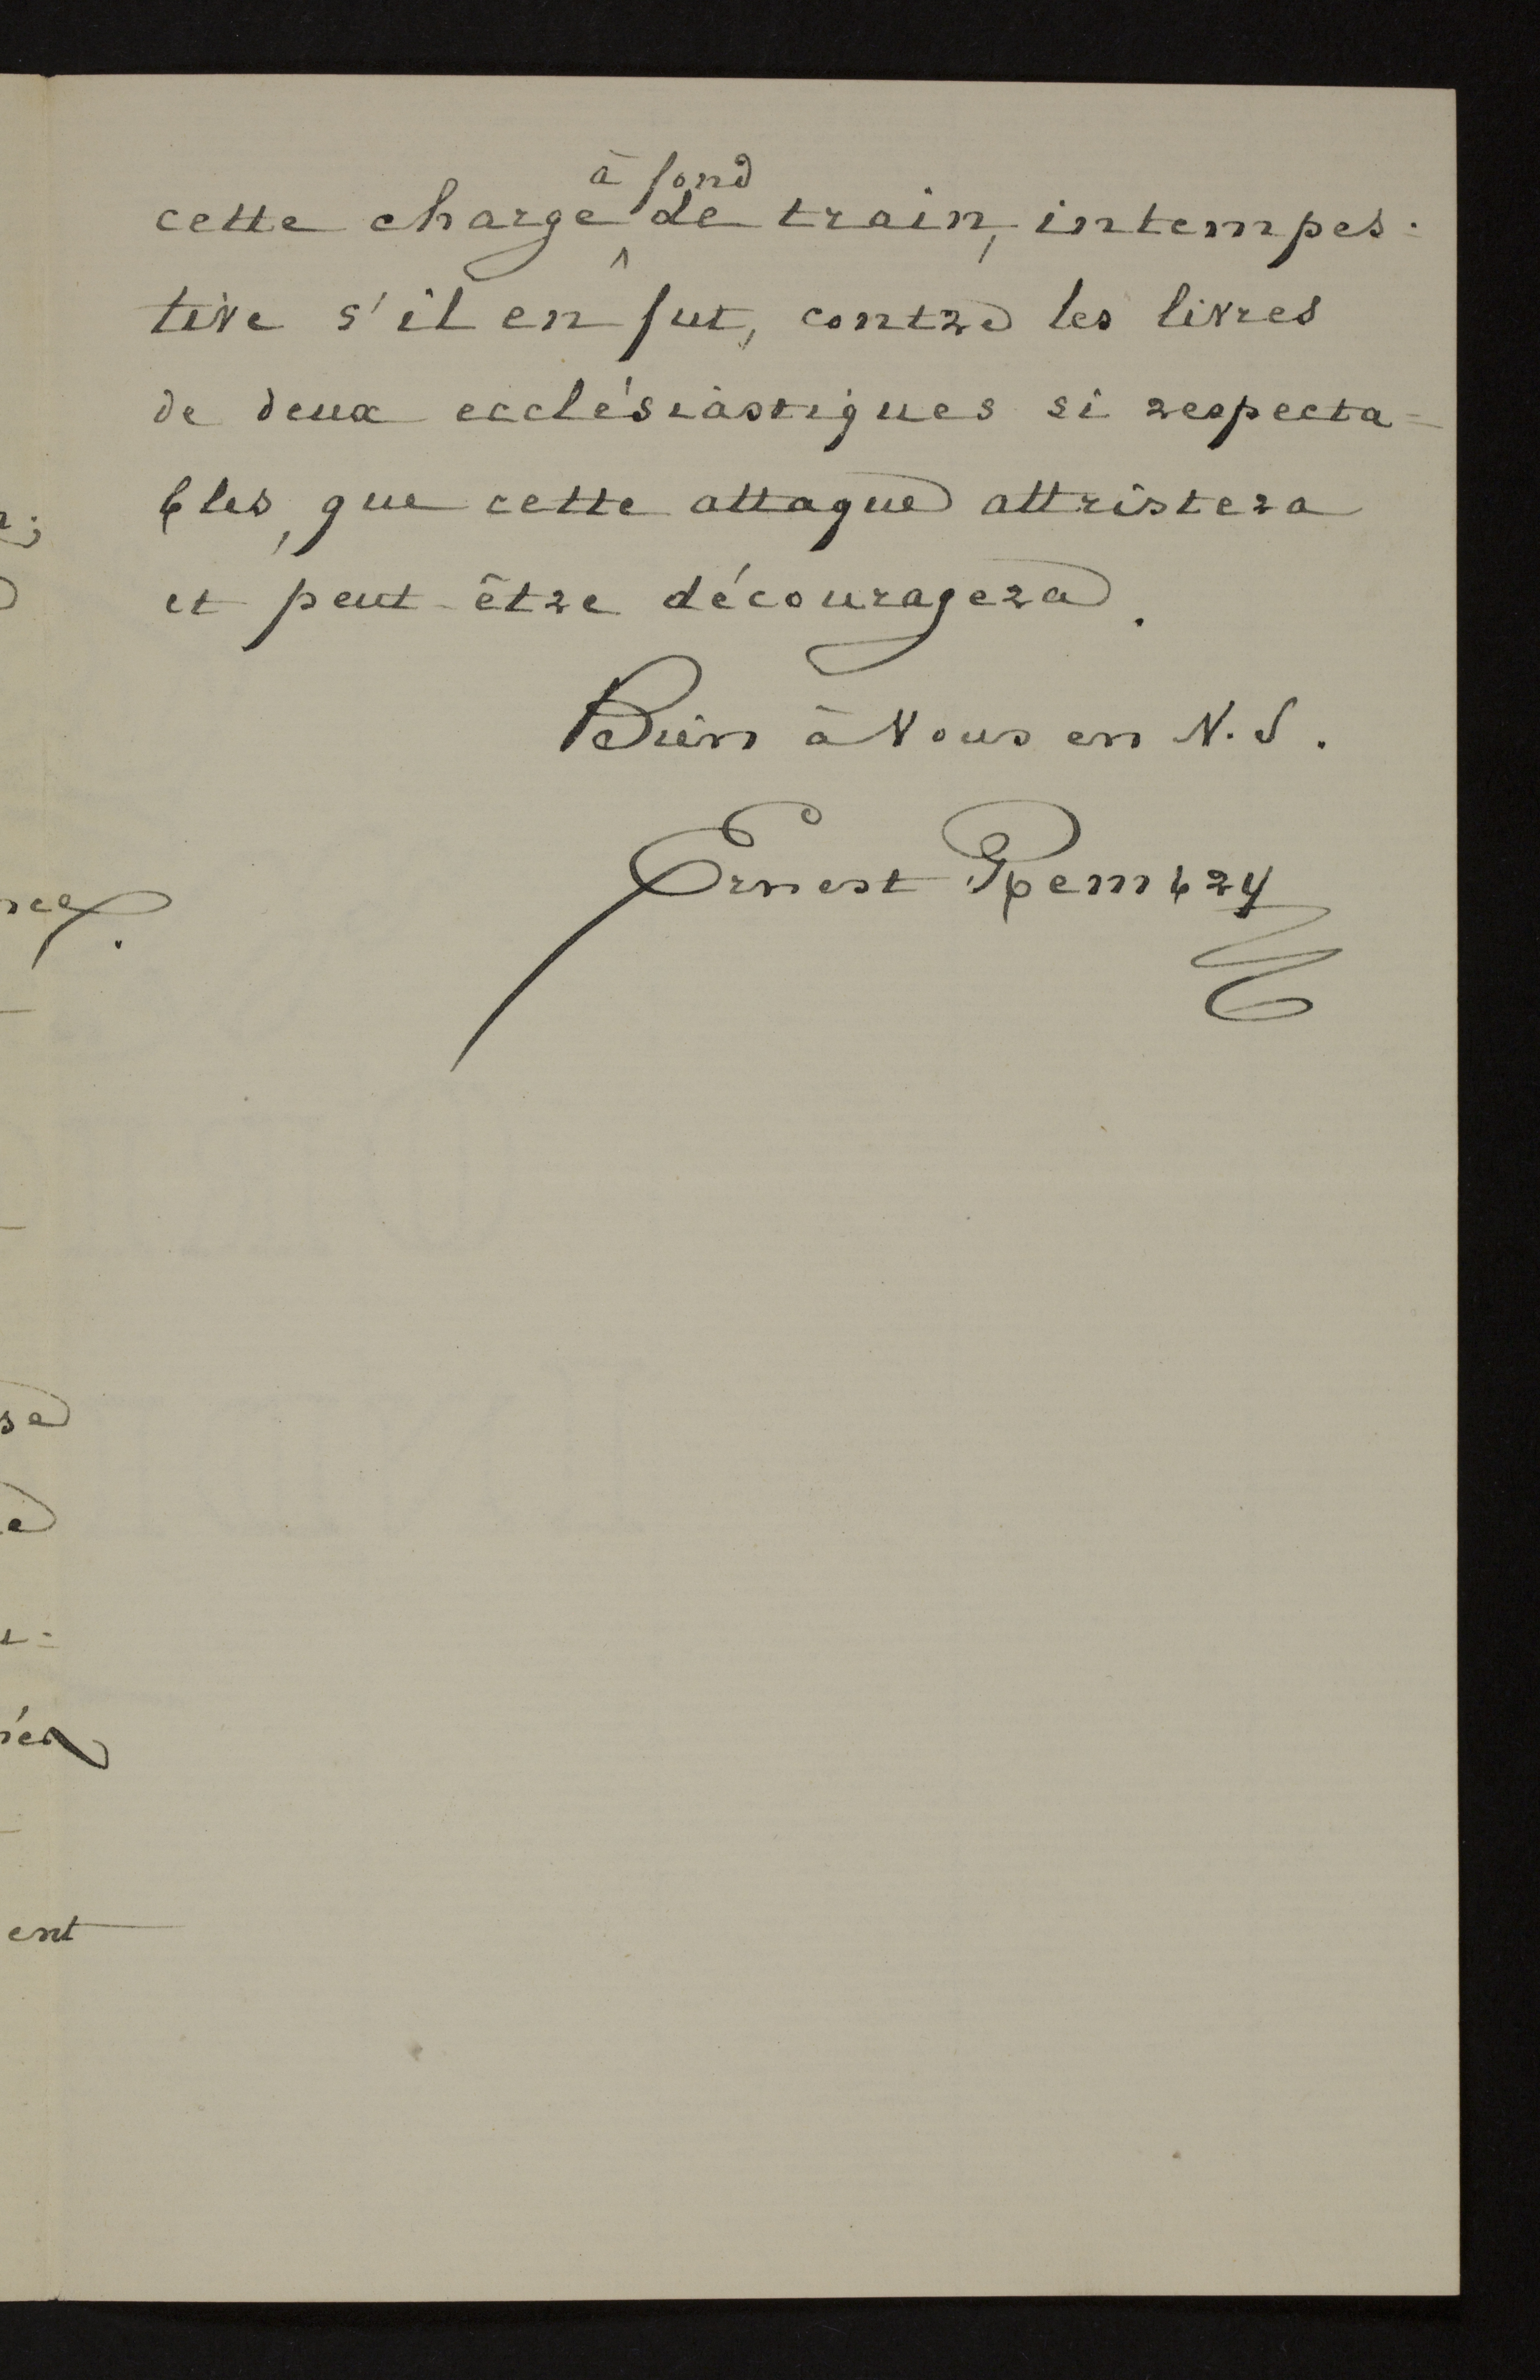 à fond
cette charge de train, intempes-
tive s'il en fut, contre les livres
de deux ecclésiastiques si respecta=
bles, que cette attaque attristera
et peut-être découragera.
Bien à Vous en N. S.
Ernest Rembry
se
e
ent